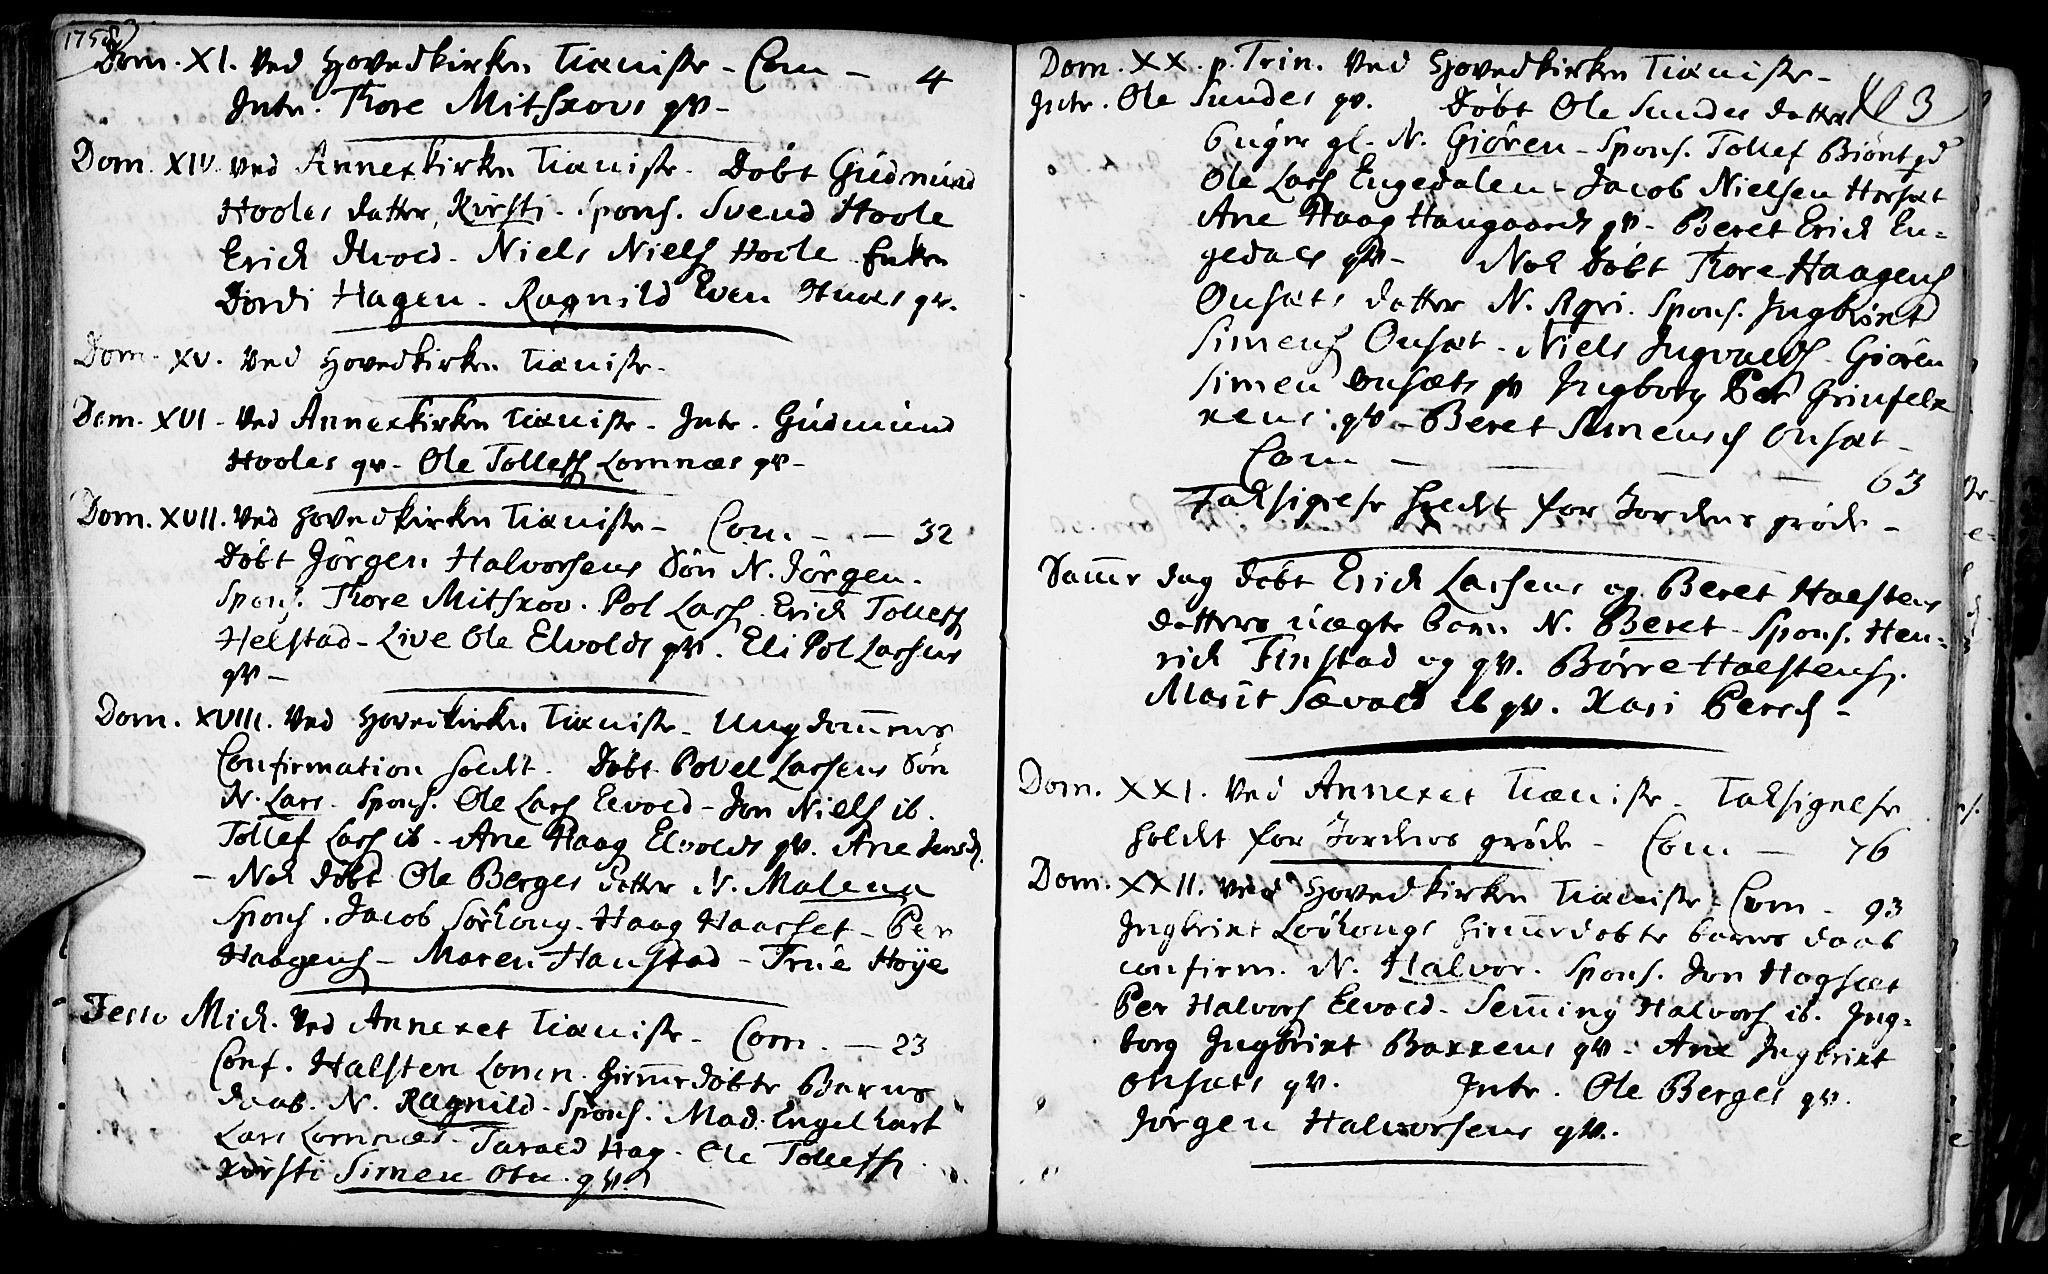 Dom. XI. Ved Hovedkirken Tieniste - Com - 4
Intr. Thore Mitskovs qv-
Dom. XIV. Ved Annexkirken Tieniste. Döbt Gúdmúnd
Hooles datter, Kirsti. Spons. Svend Hoole
Erich Nielss Hoole Enken
Hagen. Ragnild Even qv.
Dom. XV. Ved Hovedkirken Tieniste.
Dom. XVI. Ved Annexkirken Tieniste. Intr. Gúdmúnd
Hooles qv- Ole Tollefss Lomnæs qv-
Dom. XVII. Ved Hovedkirken Tieniste - Com. - - 32
Döbt Jörgen Halvorsens Sön N. Jörgen.
Spons. Thore Mitskov. Pol Larss. Erich Tollefss
Helstad - Live Ole Elvolds qv. Eli Pol Larsens
qv-
Dom. XVIII. Ved Hovedkirken Tieniste - Ungdommens
Confirmation holdt. Döbt Povel Larsens Sön
N. Lars. Spons. Ole Larss Elvold - Jon Nielss ib.
Tollef Larss ib - Ane Haag Elvolds qv. Ane
- Noch döbt Ole Berges datter N. Malena
Spons. Jacob Haag Haarset - Per
Haagenss - Maren Hanstad - Trúe Höye
Festo Mich. Ved Annexet Tieniste - Com. - 23
Conf. Halsten Lomn. hiemmedöbte Barns
daab. N. Ragnild - Spons. Mad. Engelhart
Lars Lomnæs - Tarald Hag. Ole Tollefss
Kirsti Simen Otn. qv.
Dom. XX. p. Trin. Ved Hovedkirken Tieniste -
103
Intr. Ole Sundes qv. Döbt Ole Sundes datter
6 uger gl. N. Giören - Spons. Tollef
Ole Larss Engedalen - Jacob Nielsen Horset
Ane Haag Haugaards qv - Beret Erich En=
gedals qv- Noch döbt Thore Haagenss
Onsæts datter N. Spons. Ingbrixt
Simenss Onsæt - Niels Ingvaldss - Giören
Simen Onsæts qv Ingborg Per
qv - Beret Simensd Onsæt -
Com - - - - 63
Taksigelse holdt for Jordens gröde -
Samme dag döbt Erich Larsens og Beret Halstens
datters úægte barn N. Beret - Spons. Hen=
rich Finstad og qv. Börre Halstenss.
Marit Sævold ib qv. Kari Persd -
Dom. XXI. Ved Annexet Tieniste - Taksigelse
holdt for Jordens gröde - Com. - 76
Dom. XXII. Ved Hovedkirken Tieniste - Com - 93
Ingbrixt hiemmedöbte barns daab
confirm. N. Halvor. Spons. Jon Hogsæt
Per Halvorss Elvold - Semming Halvorss ib. Ing=
borg Ingbrixt Backens qv - Ane Ingbrixt
Onsæts qv. Intr. Ole Berges qv.
Jörgen Halvorsens qv.